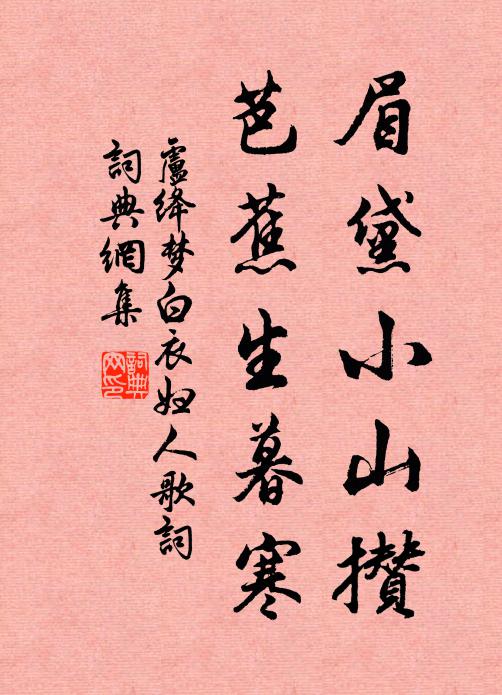 眉黛小山攅
芭蕉生暮寒
盧绛梦白衣妇人歌詞
詞典網集
詞典網印